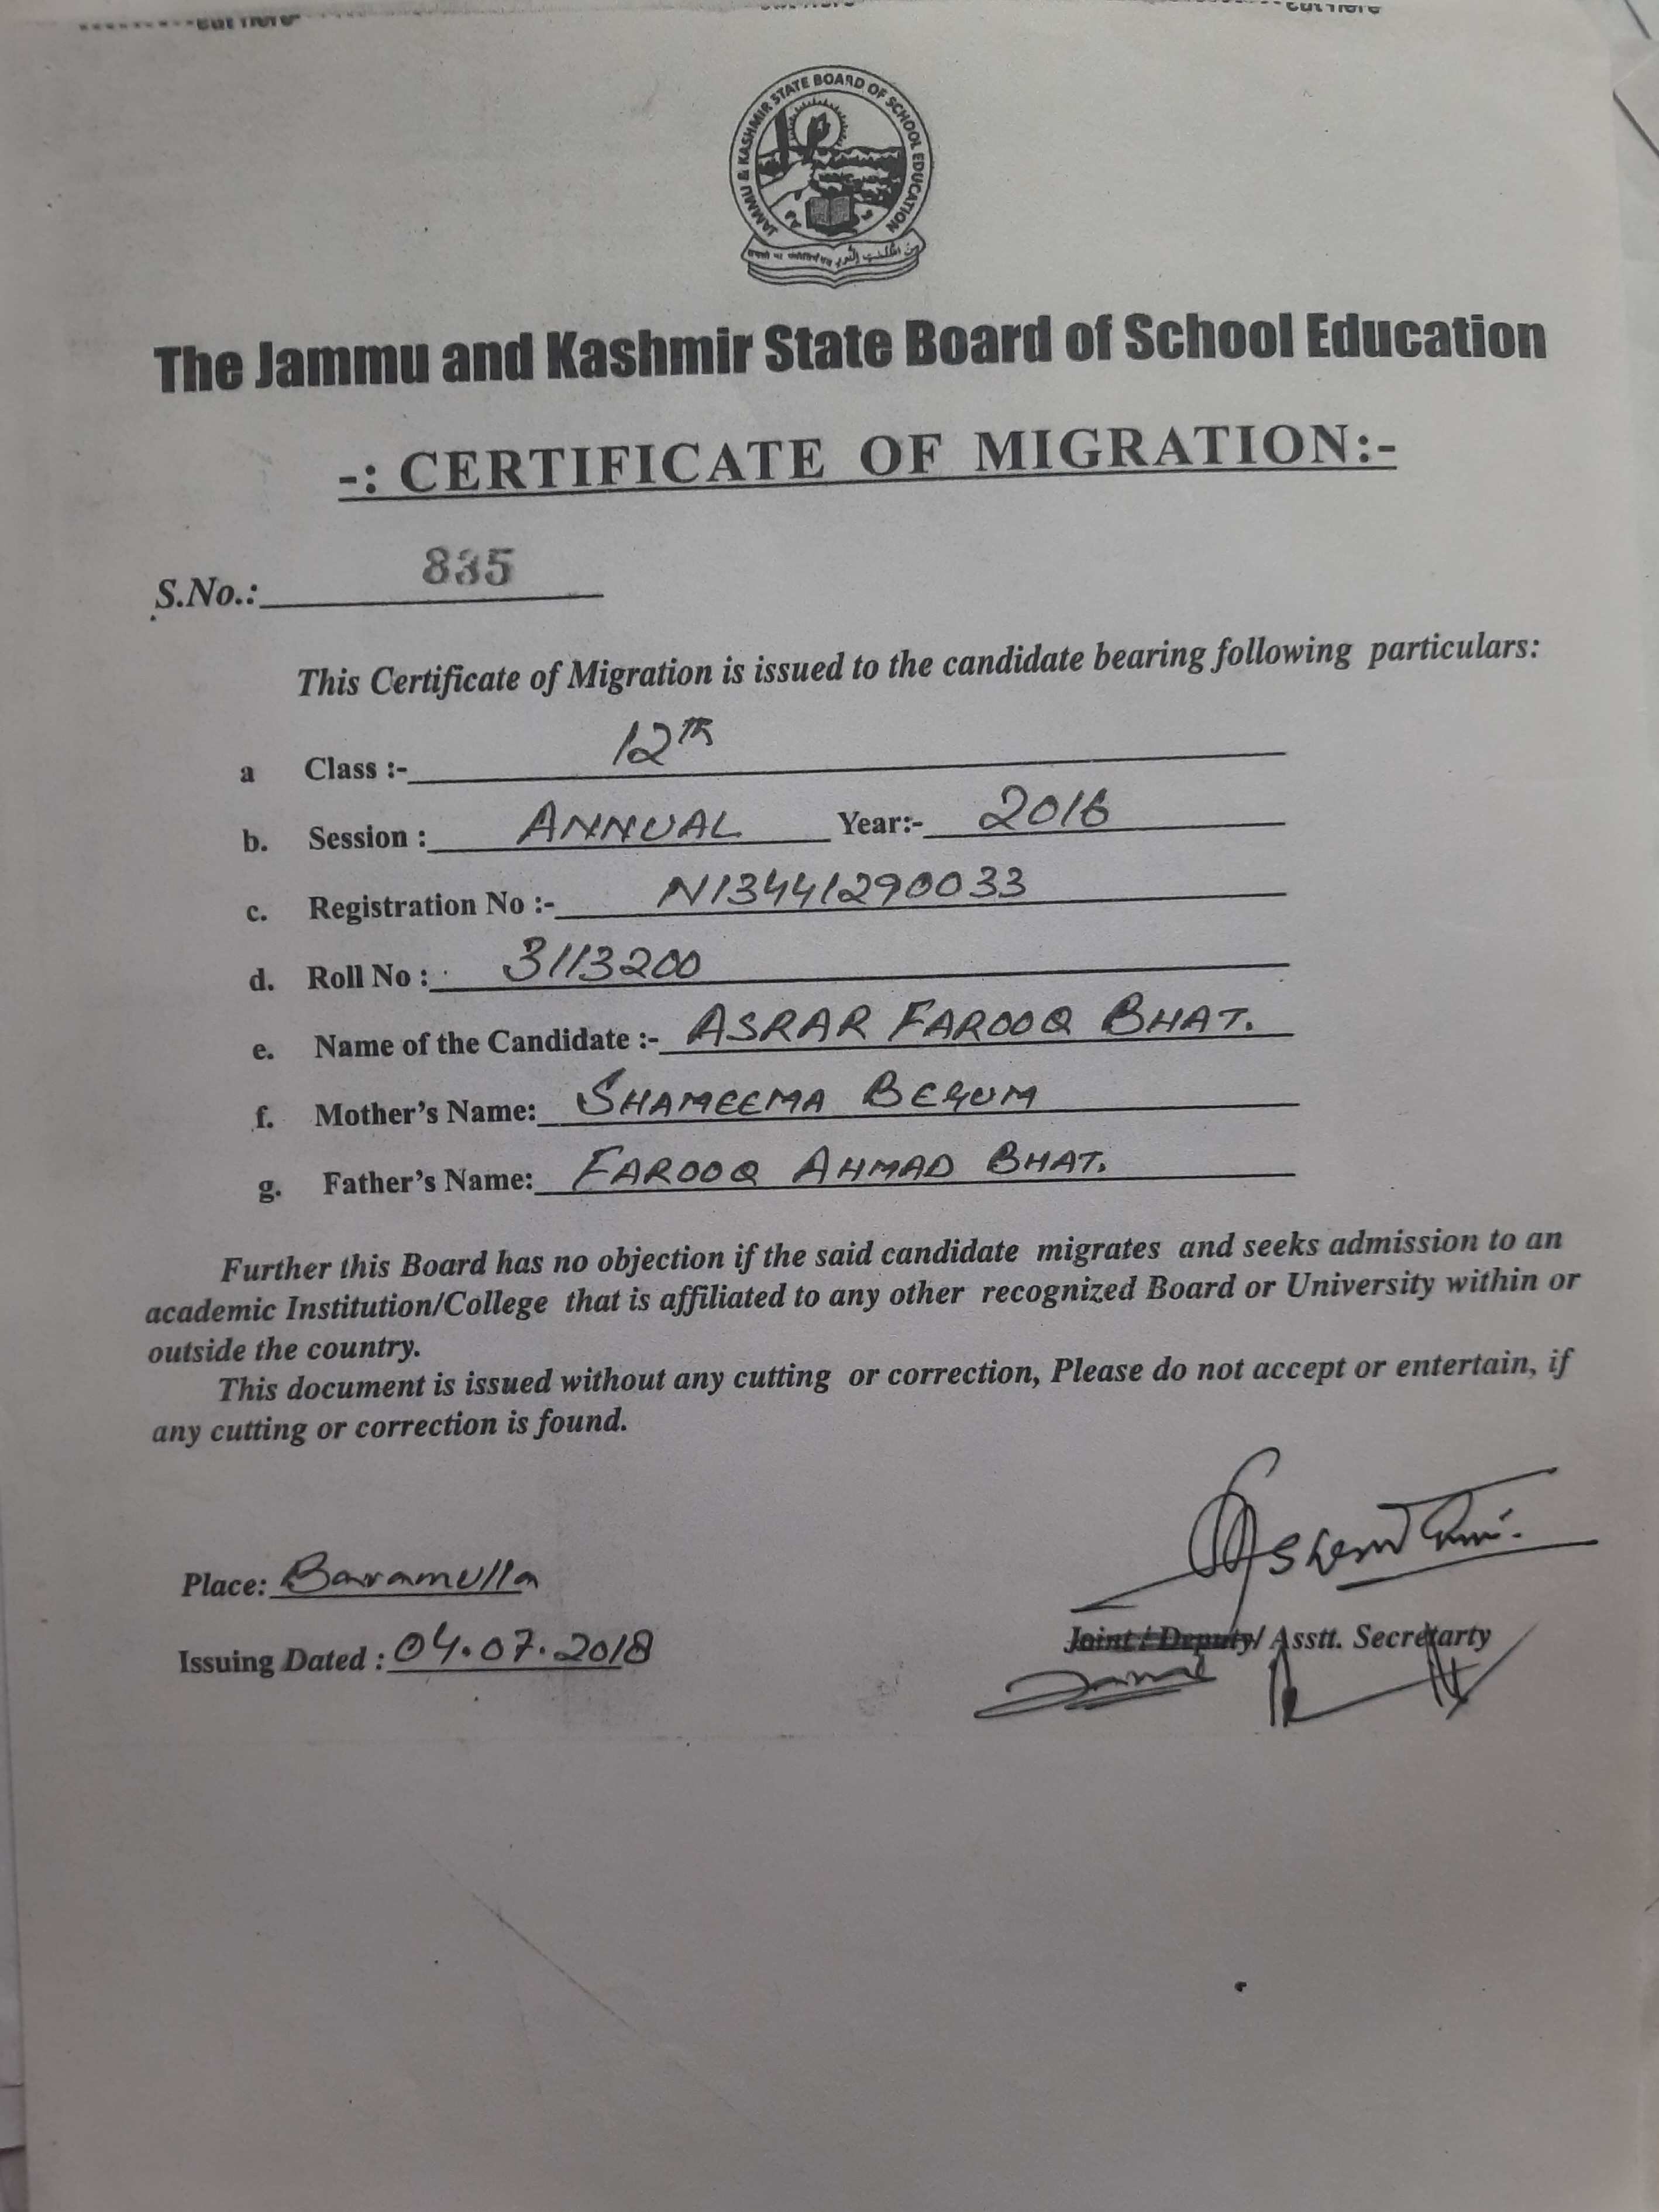 cut here cut here cut here
JAMMU & KASHMIR STATE BOARD OF SCHOOL EDUCATION
The Jammu and Kashmir State Board of School Education
-: CERTIFICATE OF MIGRATION:-
S.No.: 835
This Certificate of Migration is issued to the candidate bearing following particulars:
a Class :- 12th
b. Session : ANNUAL Year:- 2016
c. Registration No :- N13441290033
d. Roll No : 3113200
e. Name of the Candidate :- ASRAR FAROOQ BHAT.
f. Mother's Name: SHAMEEMA BEGUM
g. Father's Name: FAROOQ AHMAD BHAT.
Further this Board has no objection if the said candidate migrates and seeks admission to an
academic Institution/College that is affiliated to any other recognized Board or University within or
outside the country.
This document is issued without any cutting or correction, Please do not accept or entertain, if
any cutting or correction is found.
Place: Baramulla
Issuing Dated : 04.07.2018
Joint / Deputy/ Asstt. Secretarty